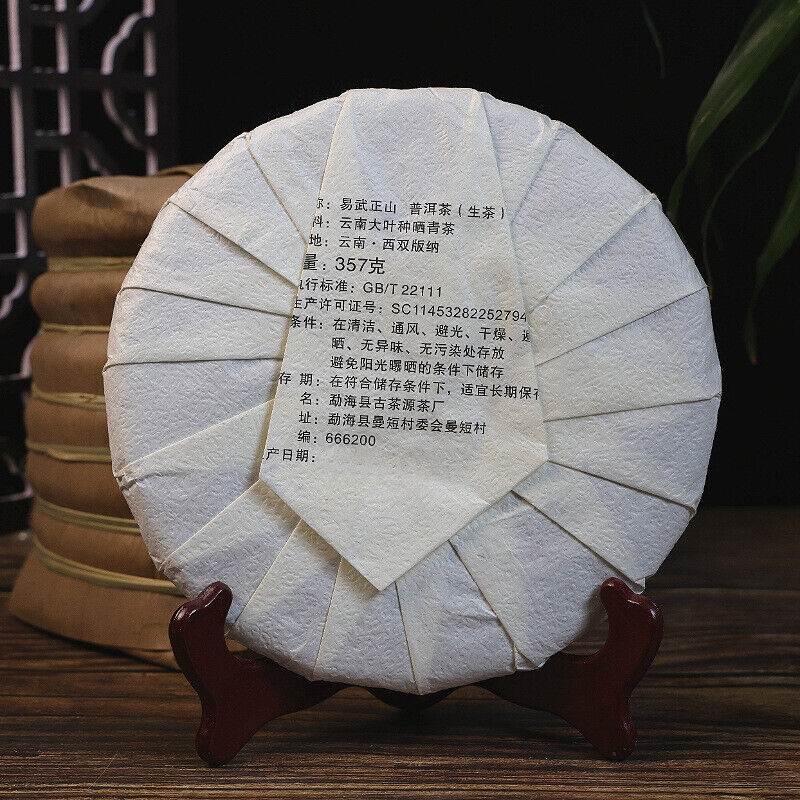 称：易武正山 普洱茶（生茶）
料：云南大叶种晒青茶
地：云南·西双版纳
量：357克
执行标准：GB/T 22111
生产许可证号：SC11453282252794
条件：在清洁、通风、避光、干燥、避
晒、无异味、无污染处存放
避免阳光曝晒的条件下储存
存 期：在符合储存条件下，适宜长期保存
名：勐海县古茶源茶厂
址：勐海县曼短村委会曼短村
编：666200
产日期：